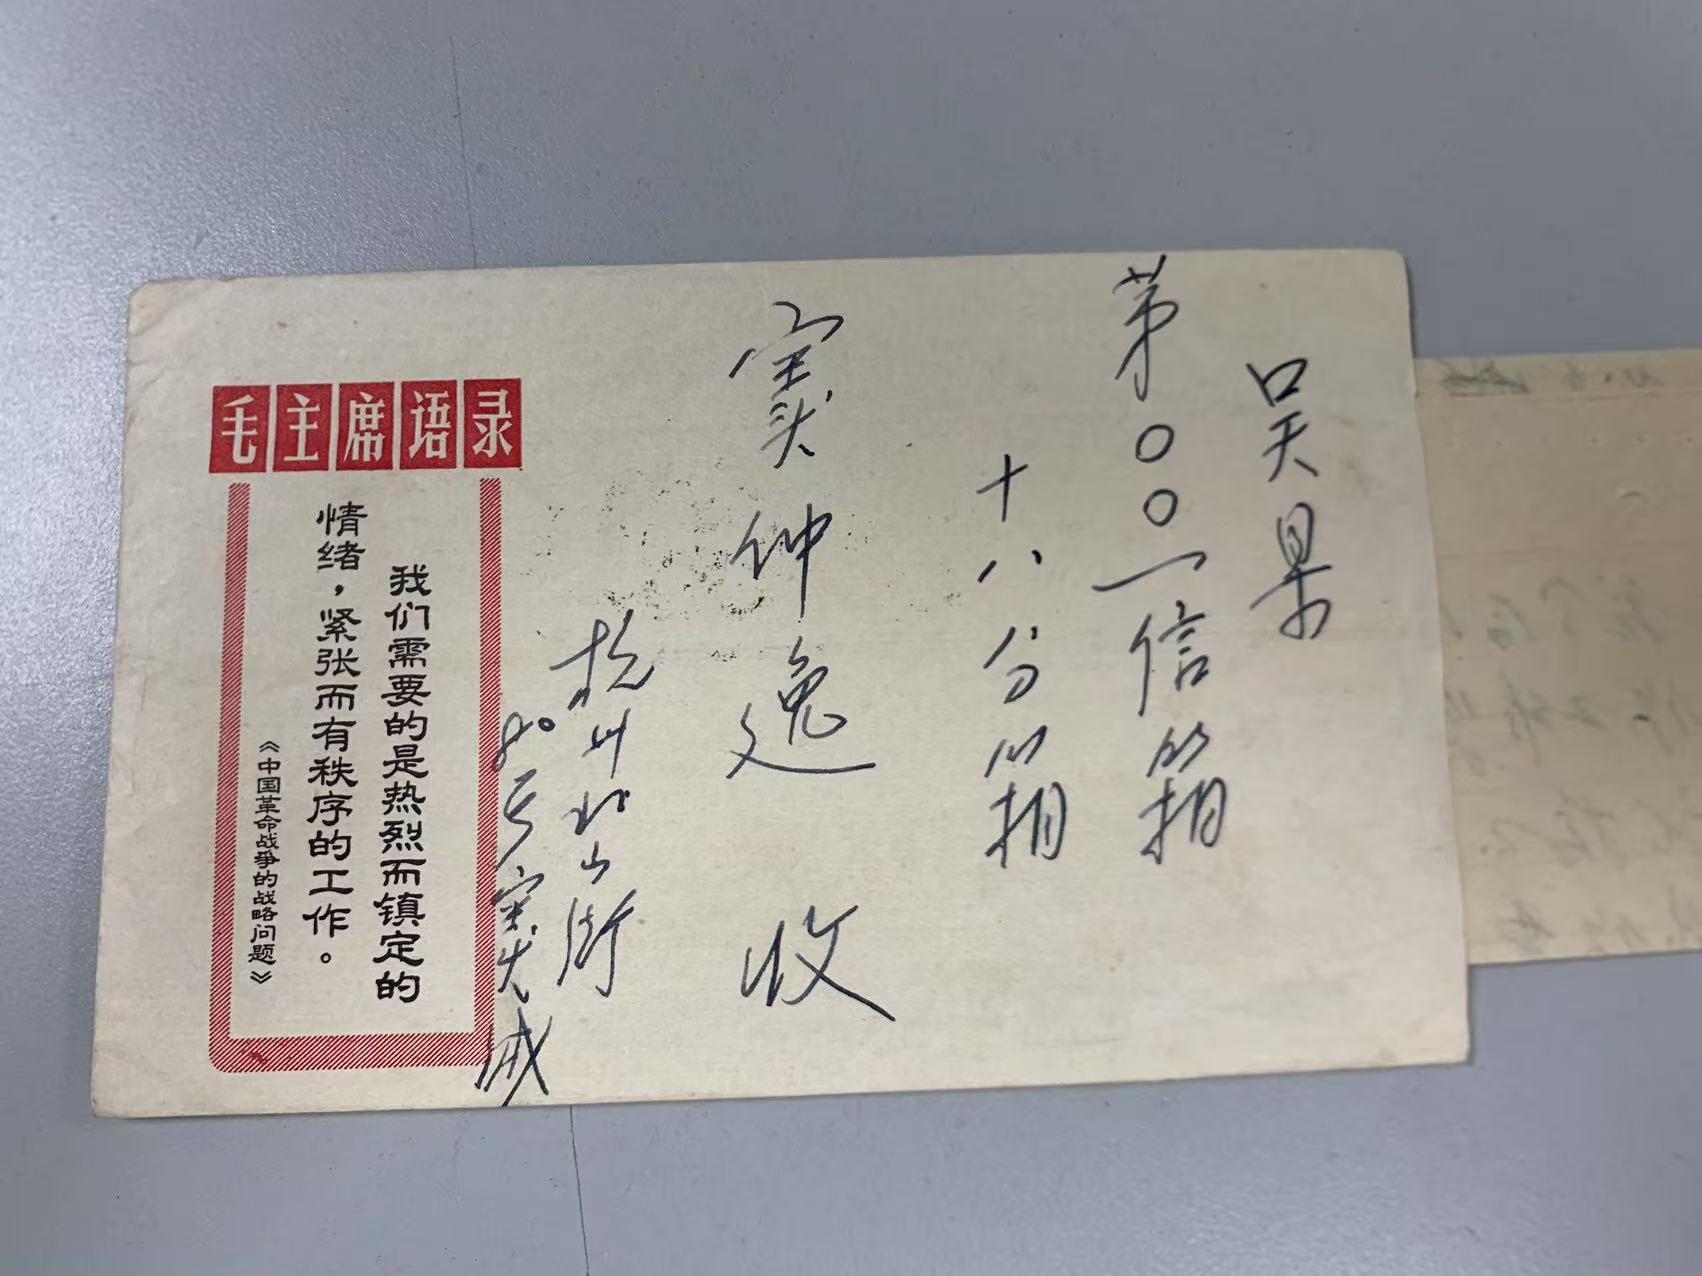 第〇〇一信箱
十八分箱
钟逸 收
杭州北山街
80号
毛主席语录
我们需要的是热烈而镇定的
情绪，紧张而有秩序的工作。
《中国革命战争的战略问题》